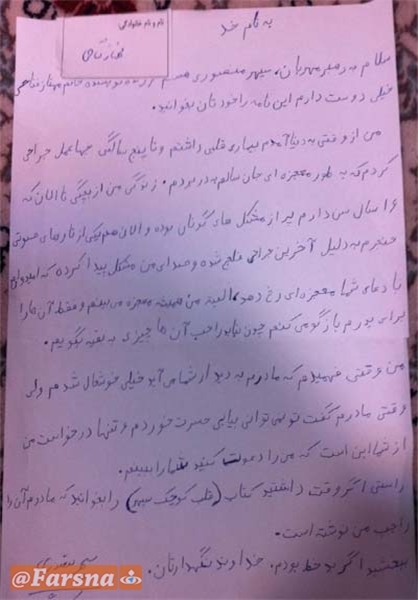 به نام خدا
نام و نام خانوادگی:
سلام به رهبر مهربان، سپهر منصوری هستم فرزند نویسنده خانم مهناز فتاحی
خیلی دوست دارم این نامه را خودتان بخوانید.
من از وقتی به دنیا آمدم بیماری قلبی داشتم و تا پنج سالگی عمل جراحی
کردم که به طور معجزه ای جان سالم به در بردم. زندگی من از بچگی تا الان که
۱۶ سال سن دارم پر از مشکل های گوناگون بوده و الان هم یکی از تارهای صوتی
حنجرم به دلیل آخرین جراحی فلج شده و صدای من مشکل پیدا کرده که امیدوارم
با دعای شما معجزه ای رخ دهد، البته من همیشه معجزه می بینم و فقط آن ها را
برای مادرم بازگو می کنم چون نباید راجب آن ها چیزی به بقیه بگویم.
من وقتی فهمیدم که مادرم به دیدار شما می آید خیلی خوشحال شدم ولی
وقتی مادرم گفت تو نمی توانی بیایی حسرت خوردم و تنها درخواست من
از شما این است که من را دعوت کنید تا شما را ببینم.
راستی اگر وقت داشتید کتاب (قلب کوچک سپهر) را بخوانید که مادرم آن را
راجب من نوشته است.
ببخشید اگر بد خط بودم. خداوند نگهدارتان.
@Farsna